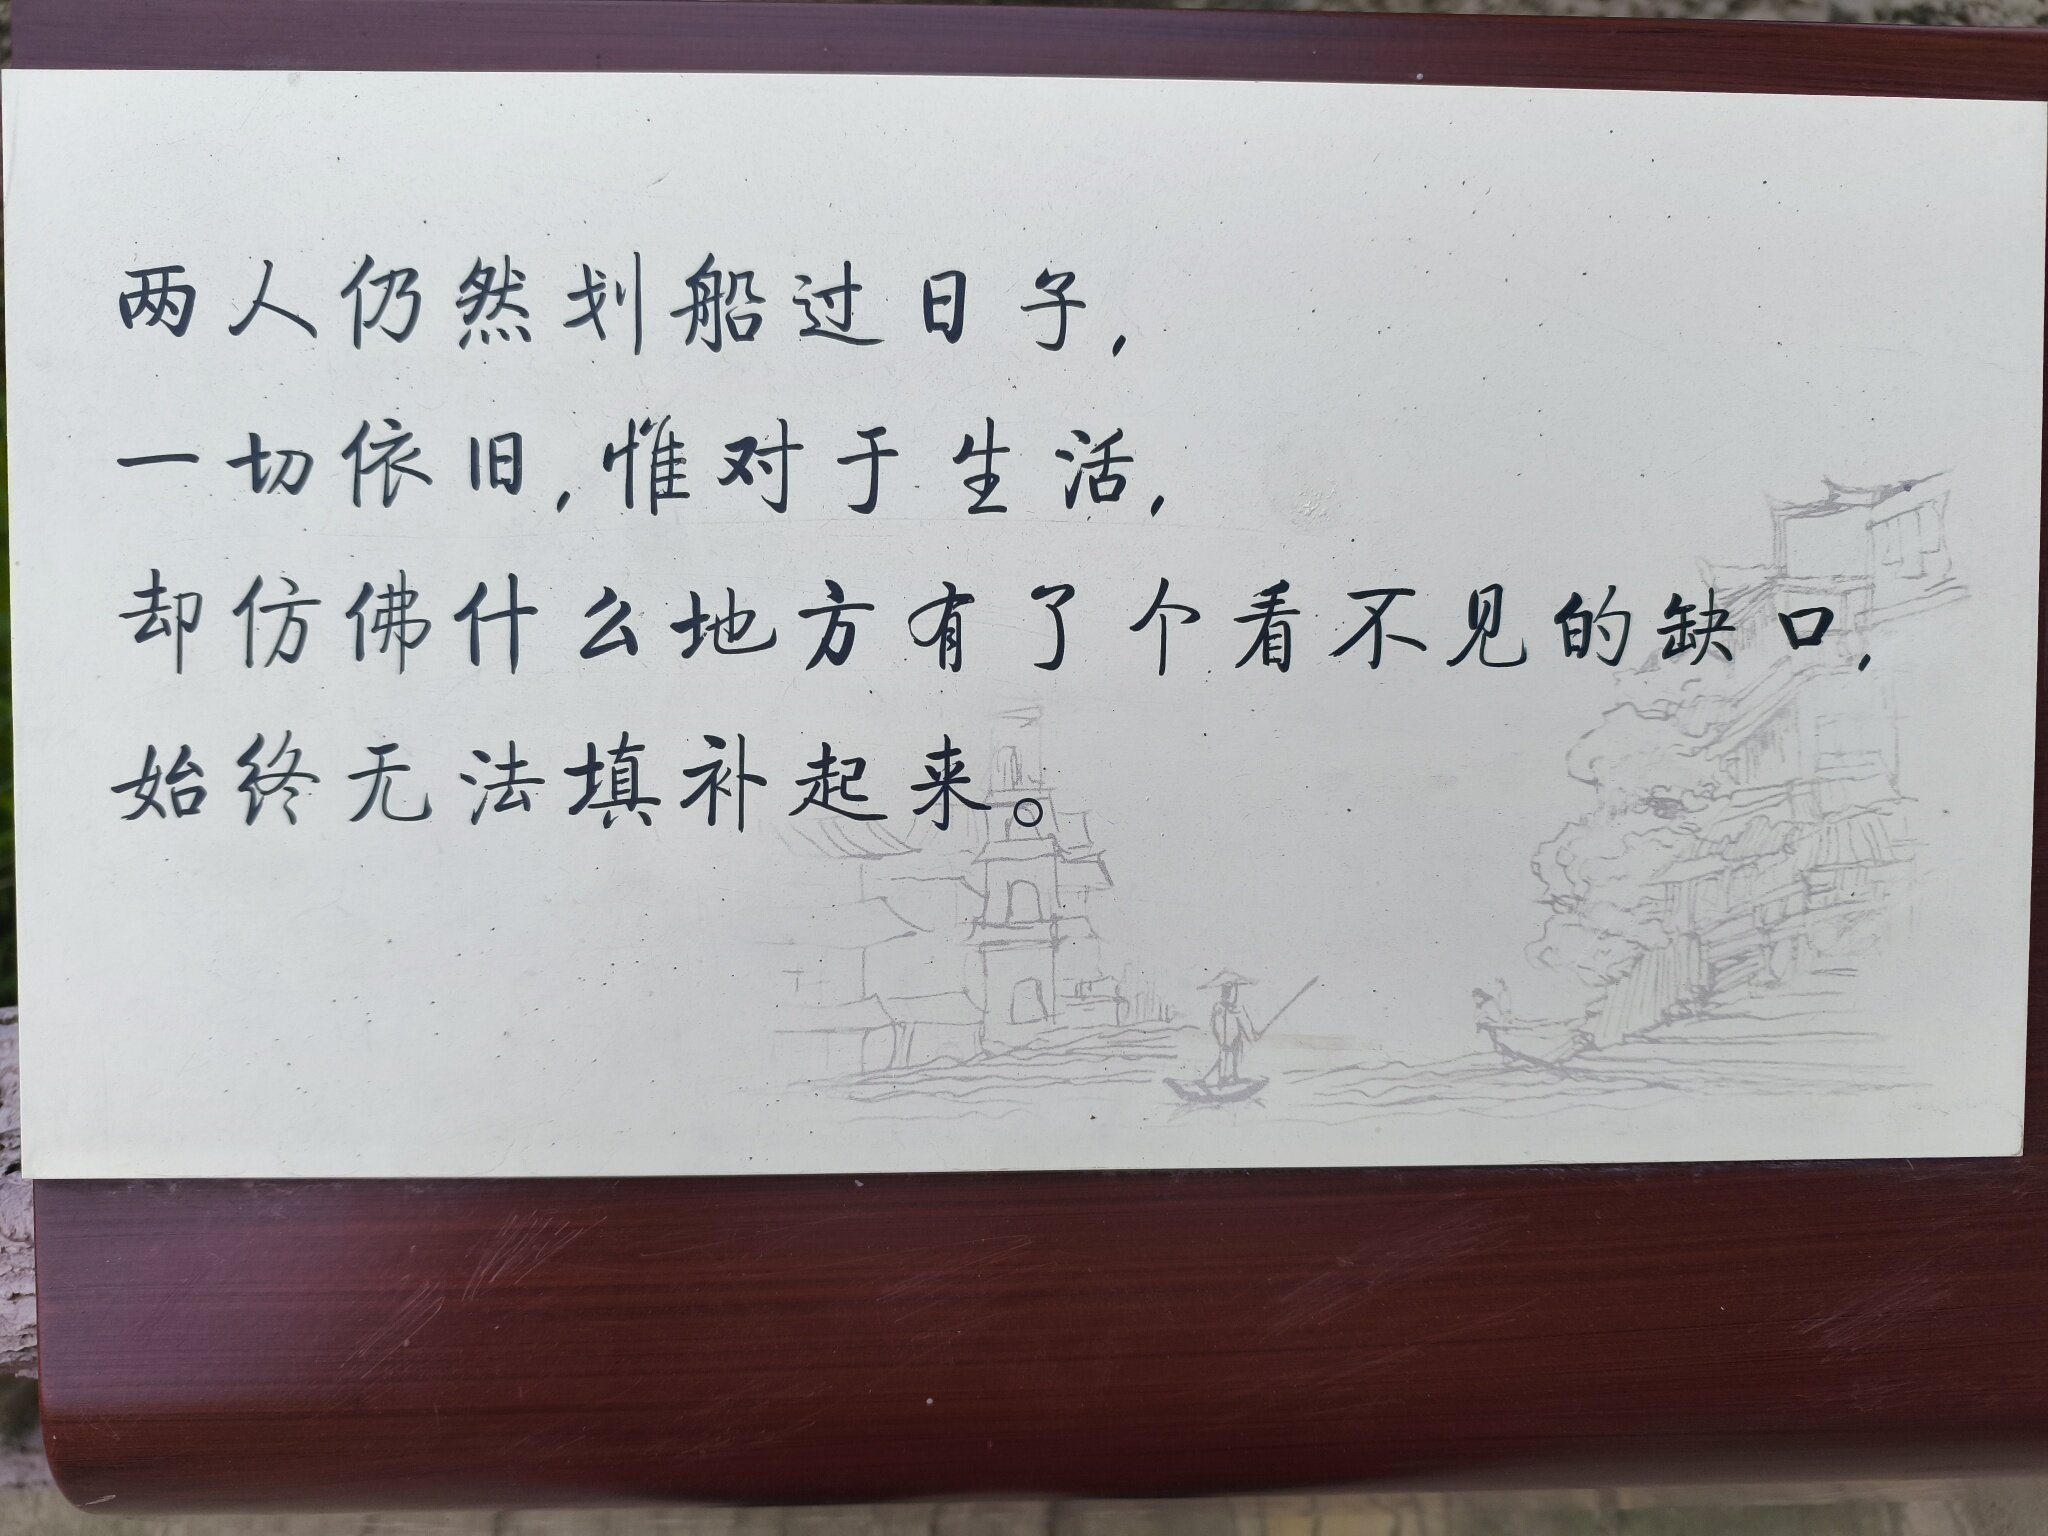 两人仍然划船过日子,
一切依旧,惟对于生活,
却仿佛什么地方有了个看不见的缺口,
始终无法填补起来。